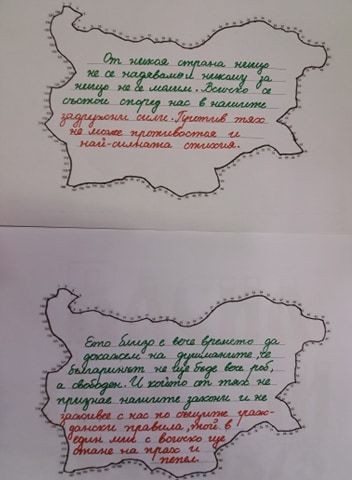 От никоя страна нищо
не се надяваме и никому за
нищо не се молим. Всичко се
състои според нас в нашите
задружни сили. Против тях
не може противостоя и
най-силната стихия.
Ето близо е вече времето да
докажем на душманите, че
българинът не ще бъде вече роб,
а свободен. И който от тях не
признае нашите закони и не
заживее с нас по общите граж-
дански правила, той в
един миг с всичко ще
стане на прах и
пепел.